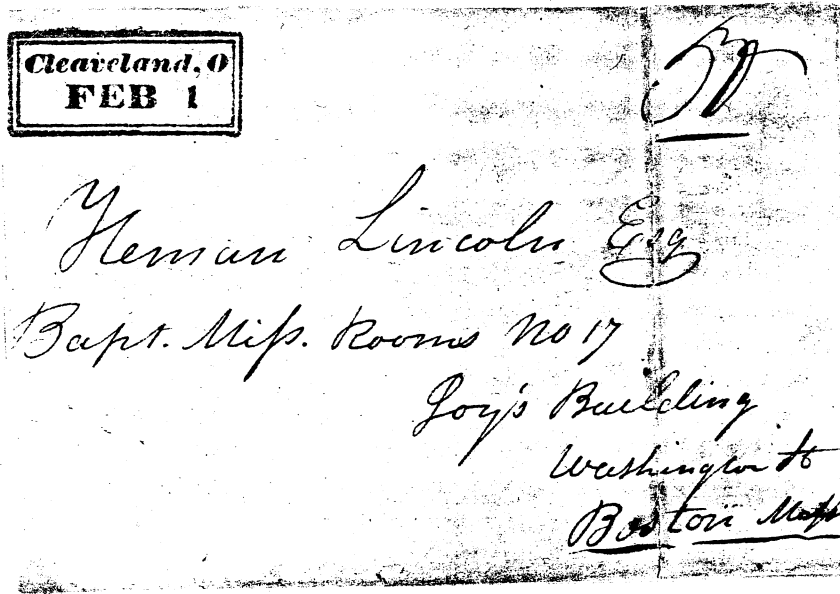 Cleaveland, O
FEB 1
Heman Lincoln Esq
Bapt. Miss. Rooms No 17
Joy's Building
Washington St
Boston Mass